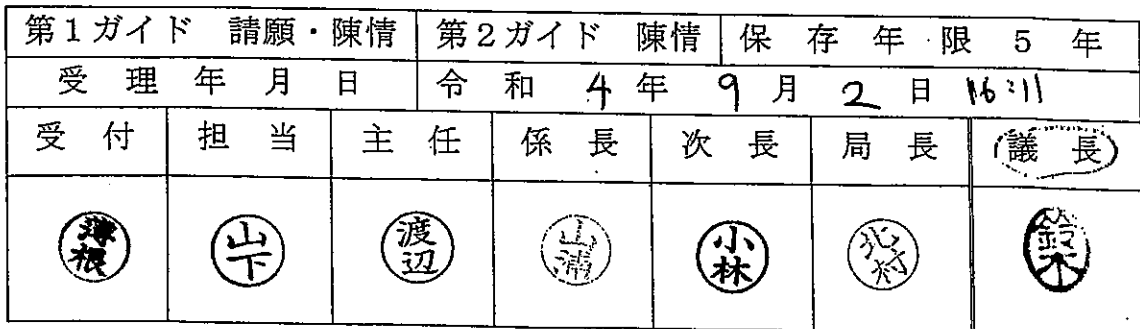 第1ガイド 請願・陳情 第2ガイド 陳情 保存年限 5年
受理年月日 令和4年9月2日 16:11
受付 担当 主任 係長 次長 局長 議長
薄根 山下 渡辺 山浦 小林 北村 鈴木